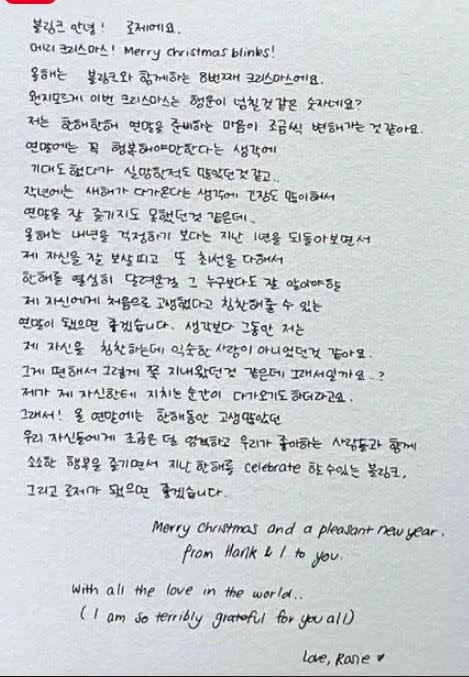 블링크 안녕! 로제에요.
메리 크리스마스! Merry Christmas blinks!
올해는 블링크와 함께하는 8번째 크리스마스에요.
왠지모르게 이번 크리스마스는 행운이 넘칠것 같은 숫자네요?
저는 한해한해 연말을 준비하는 마음이 조금씩 변해가는 것 같아요.
연말에는 꼭 행복해야만한다는 생각에
기대도 했다가 실망한적도 많았던것 같고..
작년에는 새해가 다가온다는 생각에 긴장도 많이해서
연말을 잘 즐기지도 못했던것 같은데..
올해는 내년을 걱정하기 보다는 지난 1년을 되돌아보면서
제 자신을 잘 보살피고 또 최선을 다해서
한해를 열심히 달려온걸 그 누구보다도 잘 알아야할
제 자신에게 처음으로 고생했다고 칭찬해줄 수 있는
연말이 됐으면 좋겠습니다. 생각보다 그동안 저는
제 자신을 칭찬하는데 익숙한 사람이 아니었던것 같아요.
그게 편해서 그렇게 쭉 지내왔던것 같은데 그래서일까요..?
제가 제 자신한테 지치는 순간이 다가오기도 하더라고요.
그래서! 올 연말에는 한해동안 고생많았던
우리 자신들에게 조금은 덜 엄격하고 우리가 좋아하는 사람들과 함께
소소한 행복을 즐기면서 지난 한해를 celebrate 할 수있는 블링크,
그리고 로제가 됐으면 좋겠습니다.
Merry Christmas and a pleasant new year.
from Hank & I to you.
With all the love in the world..
(I am so terribly grateful for you all)
Love, Rosie ♥